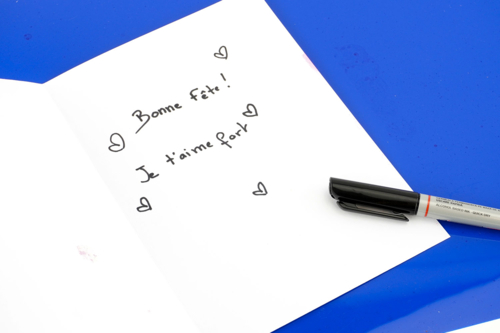 Bonne fête !
Je t'aime fort